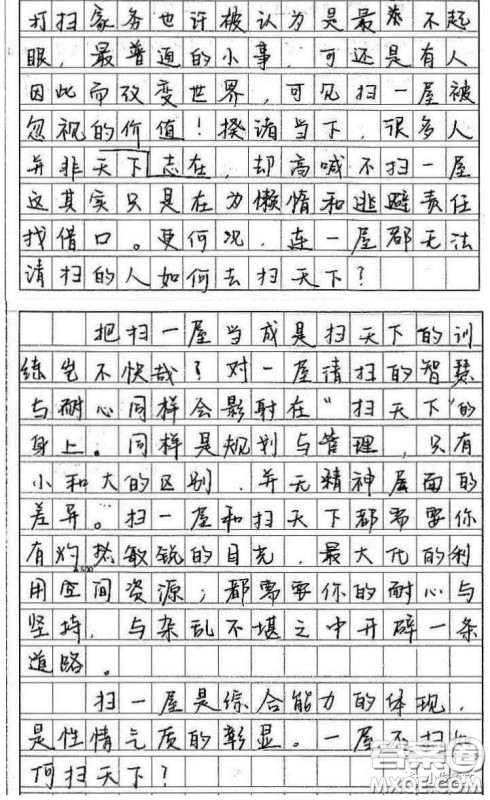 打扫家务也许被认为是最不起
眼，最普通的小事，可还是有人
因此而改变世界，可见扫一屋被
忽视的价值！揆诸当下，很多人
并非天下志在，却高喊不扫一屋
这其实只是在为懒惰和逃避责任
找借口。更何况，连一屋都无法
清扫的人如何去扫天下？
把扫一屋当成是扫天下的训
练岂不快哉？对一屋清扫的智慧
与耐心同样会影射在“扫天下”的
身上。同样是规划与管理，只有
小和大的区别，并无精神层面的
差异。扫一屋和扫天下都需要你
有灼热敏锐的目光，最大化的利
用空间资源；都需要你的耐心与
坚持，与杂乱不堪之中开辟一条
道路。
扫一屋是综合能力的体现，
是性情气质的彰显。一屋不扫
何扫天下？
答案圈
MXQE.COM